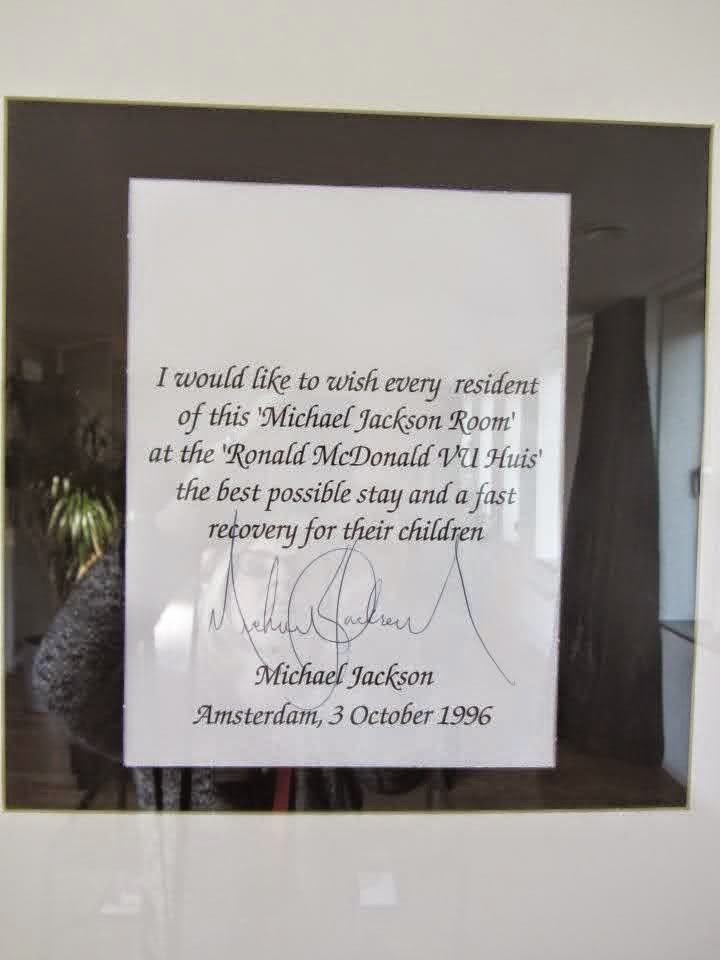 I would like to wish every resident
of this 'Michael Jackson Room'
at the 'Ronald McDonald VU Huis'
the best possible stay and a fast
recovery for their children
Michael Jackson
Michael Jackson
Amsterdam, 3 October 1996